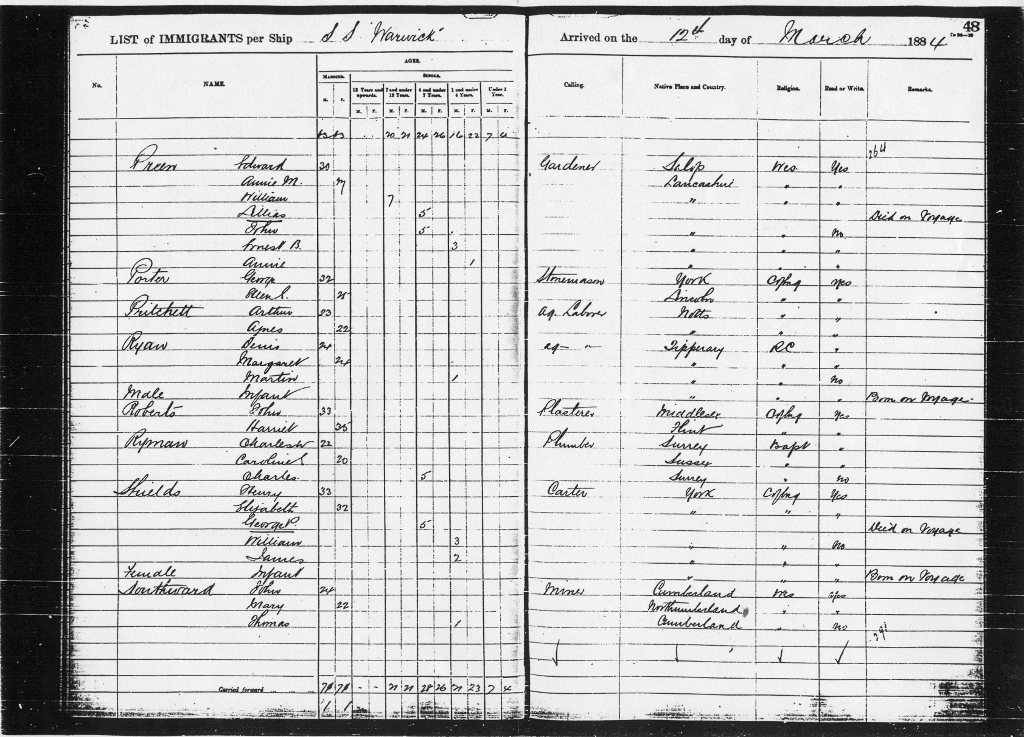 48
LIST of IMMIGRANTS per Ship S S "Warwick" Arrived on the 12th day of March 1884
AGES.
MARRIED. SINGLE.
No. NAME. 12 Years and upwards. 7 and under 12 Years. 4 and under 7 Years. 1 and under 4 Years. Under 1 Year. Calling. Native Place and Country. Religion. Read or Write. Remarks.
M. F. M. F. M. F. M. F. M. F. M. F.
63 63 - - 20 21 24 26 16 22 7 4
264
Preen Edward 30 Gardener Salop Wes. Yes
Annie M. Lancashire " "
William 7 " " "
Lillias 5 Died on Voyage
John 5 " " No
Ernest B. 3 " " "
Annie 1 " " "
Porter George 32 Stonemason York C of Eng Yes
Ellen S. Lincoln " "
Pritchett Arthur 23 Ag. Labour Notts " "
Agnes 22 " " "
Ryan Denis 24 Ag - " Tipperary RC "
Margaret 24 " " "
Martin 1 " " No
Male Infant " " " Born on Voyage
Roberts John 33 Plasterer Middlesex C of Eng Yes
Harriet 35 Flint " "
Ryman Charles W 22 Plumber Surrey Bapt "
Caroline S 20 Sussex " "
Charles 5 Surrey " no
Shields Henry 33 Carter York C of Eng Yes
Elizabeth 32 " " "
George P. 5 Died on Voyage
William 3 " " No
James 2 " " "
Female Infant " " " Born on Voyage
Southward John 24 Miner Cumberland Wes Yes
Mary 22 Northumberland " "
Thomas 1 Cumberland " no
291
Carried forward 70 70 - - 21 21 28 26 21 23 7 4